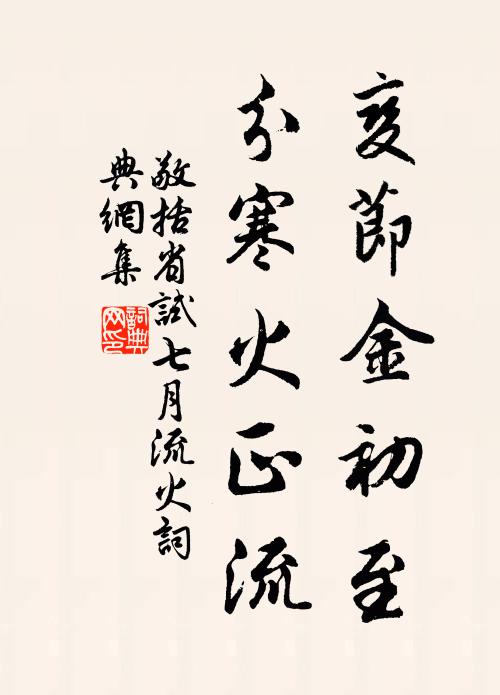 变節金初至
分寒火正流
敬括省試七月流火詞
典網集
詞典
网印